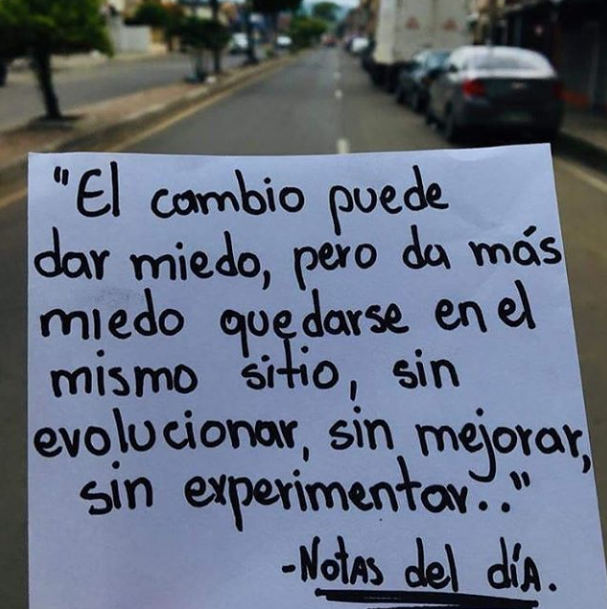 "El cambio puede
dar miedo, pero da más
miedo quedarse en el
mismo sitio, sin
evolucionar, sin mejorar,
sin experimentar.."
-Notas del día.